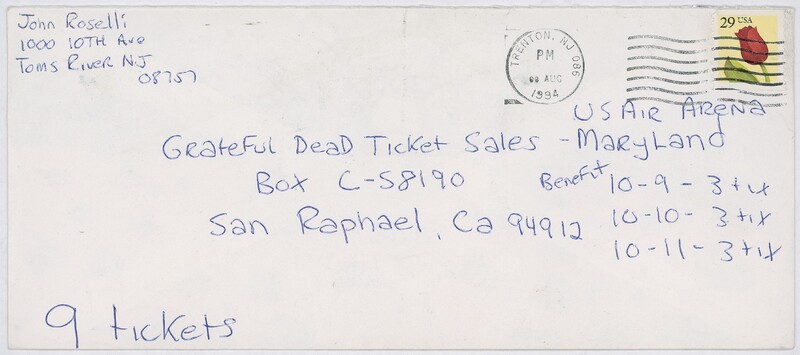 John Roselli
1000 10TH Ave
Toms River NJ
08757
TRENTON, NJ 086
PM
08 AUG
1994
29 USA
US Air Arena
Grateful Dead Ticket Sales - Maryland
Box C-S8190
San Raphael, Ca 94912
Benefit 10-9 - 3 tix
10-10- 3 tix
10-11- 3 tix
9 tickets